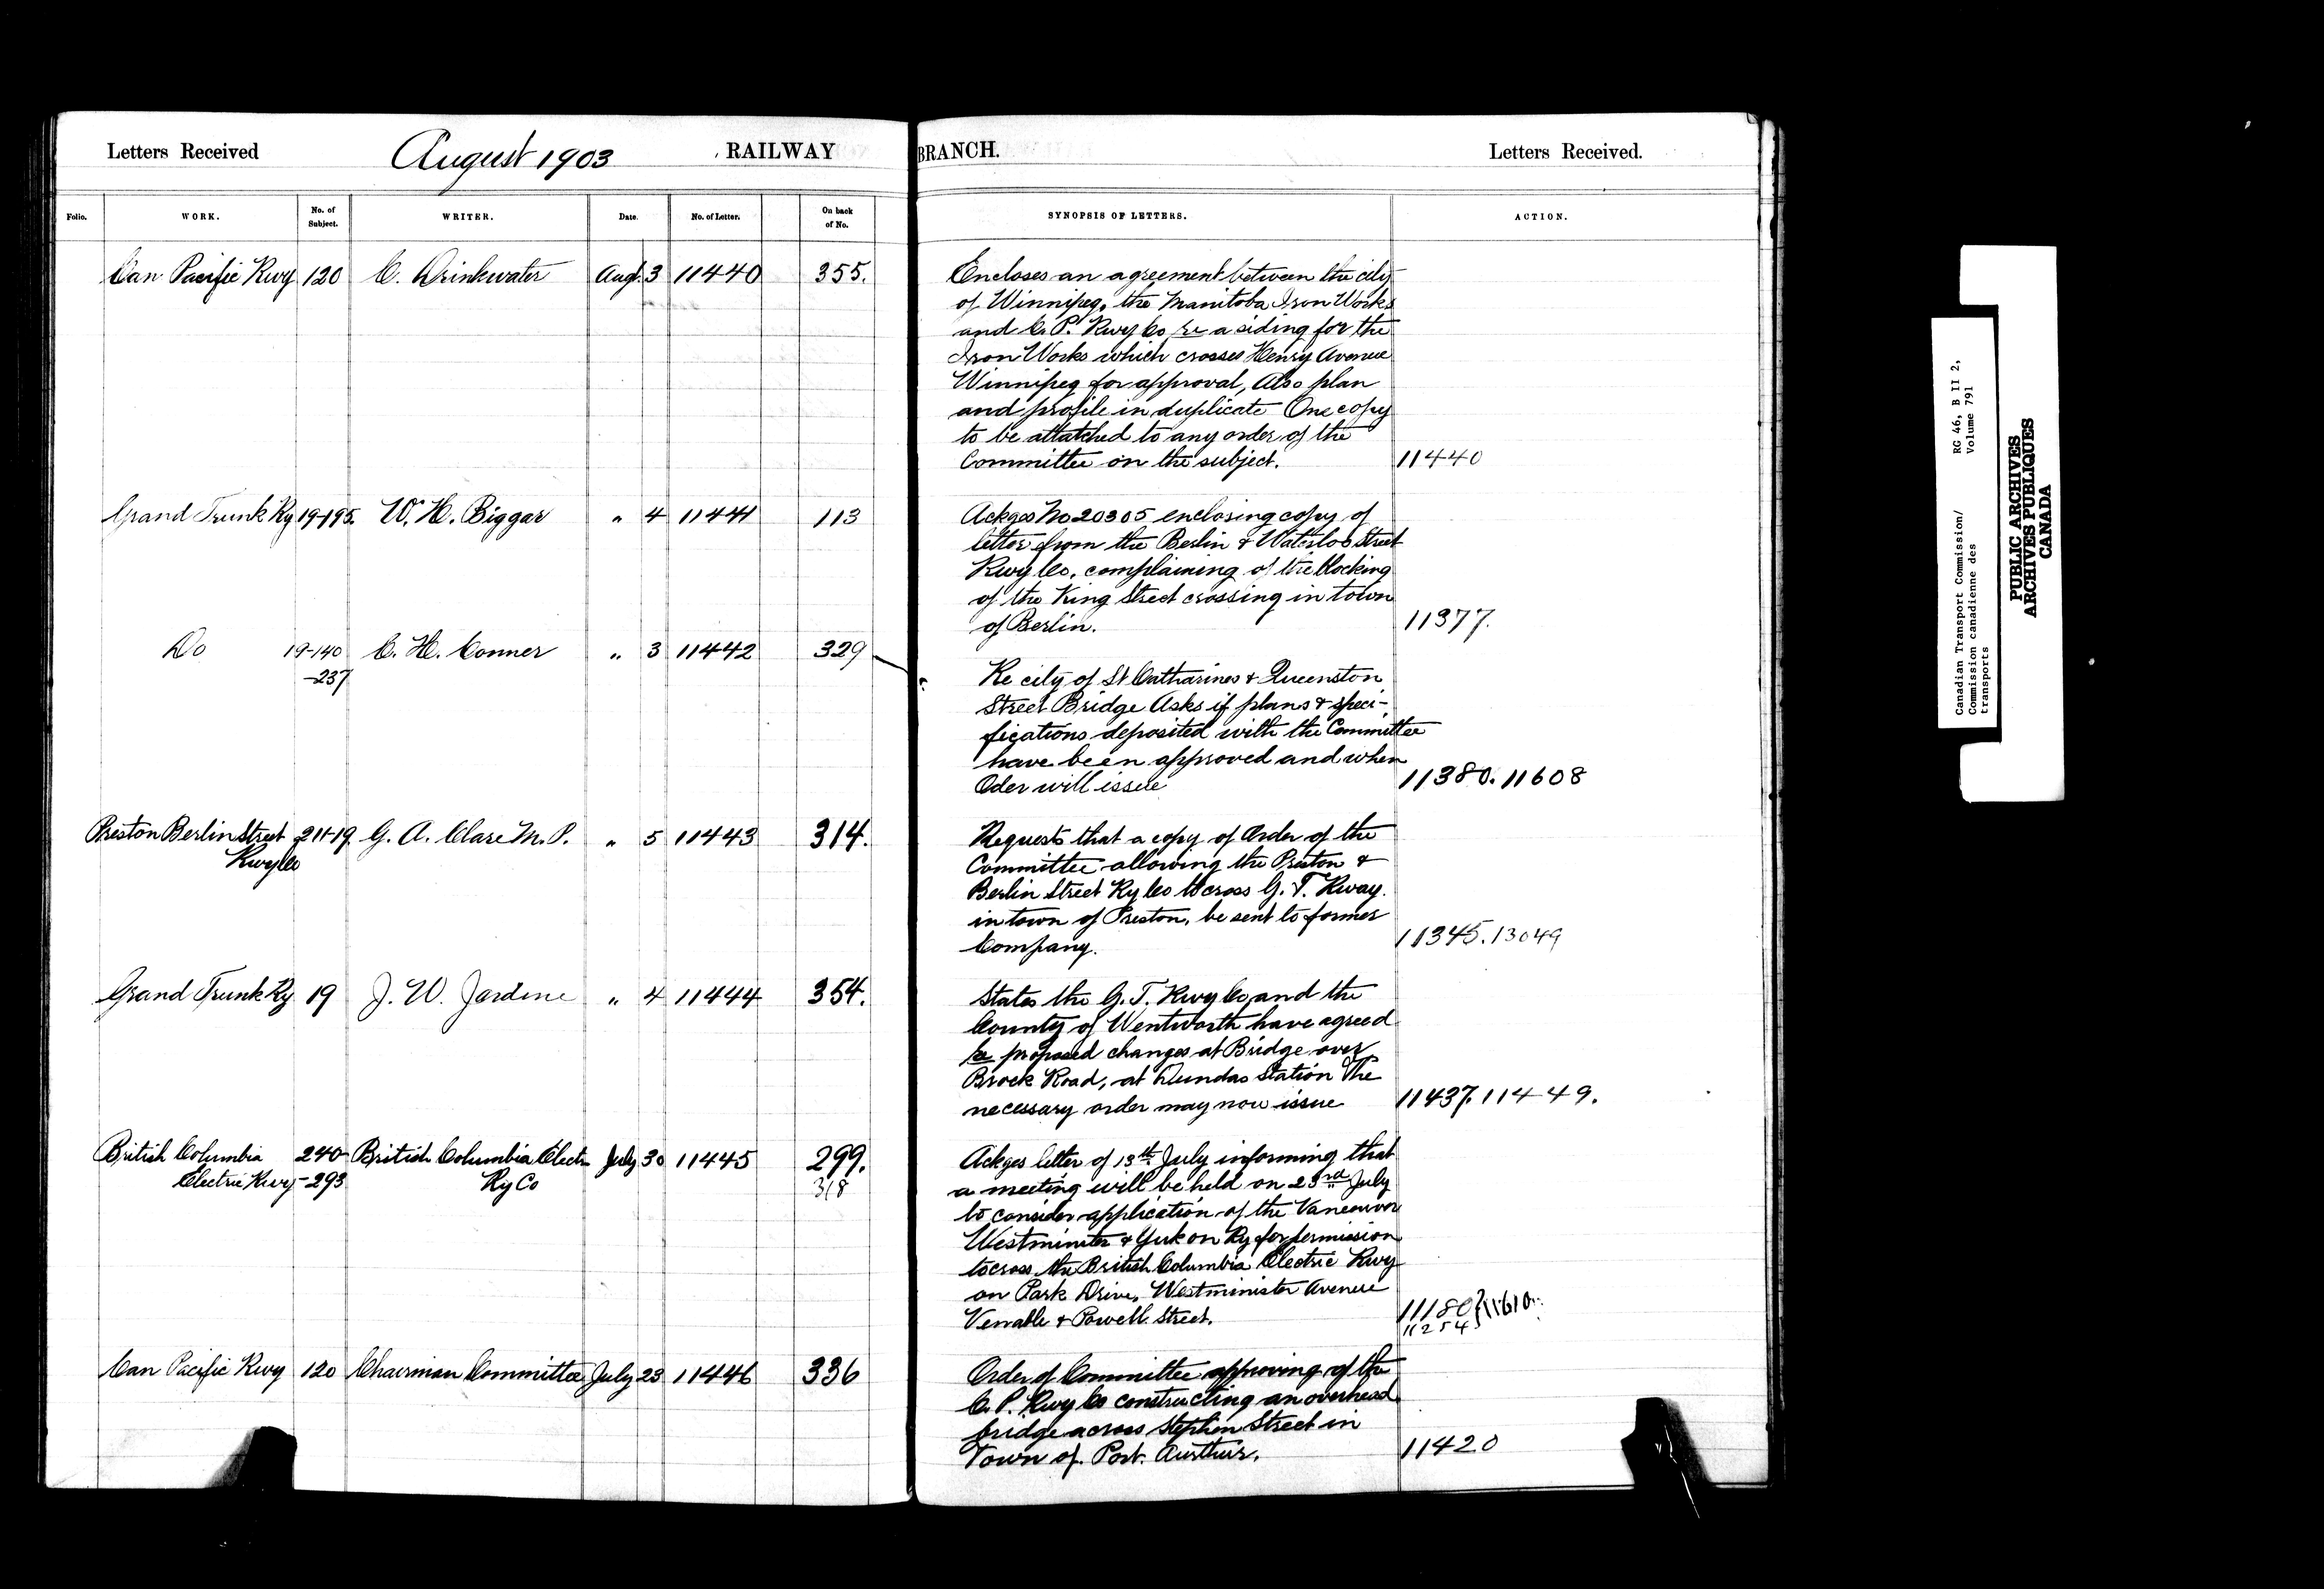 Letters Received August 1903 RAILWAY BRANCH. Letters Received.
Folio. WORK. No. of Subject. WRITER. Date. No. of Letter. On back of No. SYNOPSIS OF LETTERS. ACTION.
Can Pacific Rwy 120 C. Drinkwater Augt. 3 11440 355. Encloses an agreement between the city
of Winnipeg, the Manitoba Iron Works
and C. P. Rwy Co re a siding for the
Iron Works which crosses Henry Avenue
Winnipeg for approval, Also plan
and profile in duplicate One copy
to be attatched to any order of the
Committee on the subject. 11440
Grand Trunk Ry 19-195. W. H. Biggar " 4 11441 113 Ackges No 20305 enclosing copy of
letter from the Berlin & Waterloo Street
Rwy Co. complaining of the blocking
of the King Street crossing in town
of Berlin. 11377.
Do 19-140 C. H. Conner " 3 11442 329
-237 Re city of St Catharines & Queenston
Street Bridge Asks if plans & speci-
fications deposited with the Committee
have been approved and when
Oder will issue 11380. 11608
Preston Berlin Street 211-19. G. A. Clare M. P. " 5 11443 314. Requests that a copy of Order of the
Rwy Co Committee allowing the Preston &
Berlin Street Ry Co to cross G. T. Rway.
in town of Preston, be sent to former
Company. 11345. 13049
Grand Trunk Ry 19 J. W. Jardine " 4 11444 354. States the G. T. Rwy Co, and the
County of Wentworth have agreed
re proposed changes at Bridge over
Brock Road, at Dundas Station The
necessary order may now issue 11437. 11449.
British Columbia 240- British Columbia Electr July 30 11445 299. Ackges letter of 13th July informing that
Electric Rwy -293 Ry Co 318 a meeting will be held on 23rd July
to consider application of the Vancouver
Westminster & Yukon Ry for permission
to cross the British Columbia Electric Rwy
on Park Drive, Westminister Avenue
Venable & Powell Street. 11180 } 11610
11254
Can Pacific Rwy 120 Chairman Committee July 23 11446 336 Order of Committee approving of the
C. P. Rwy Co constructing an overhead
bridge across Stephen Street in
Town of Port. Arthur. 11420
Canadian Transport Commission/ RG 46, B II 2,
Commission canadienne des Volume 791
transports
PUBLIC ARCHIVES
ARCHIVES PUBLIQUES
CANADA